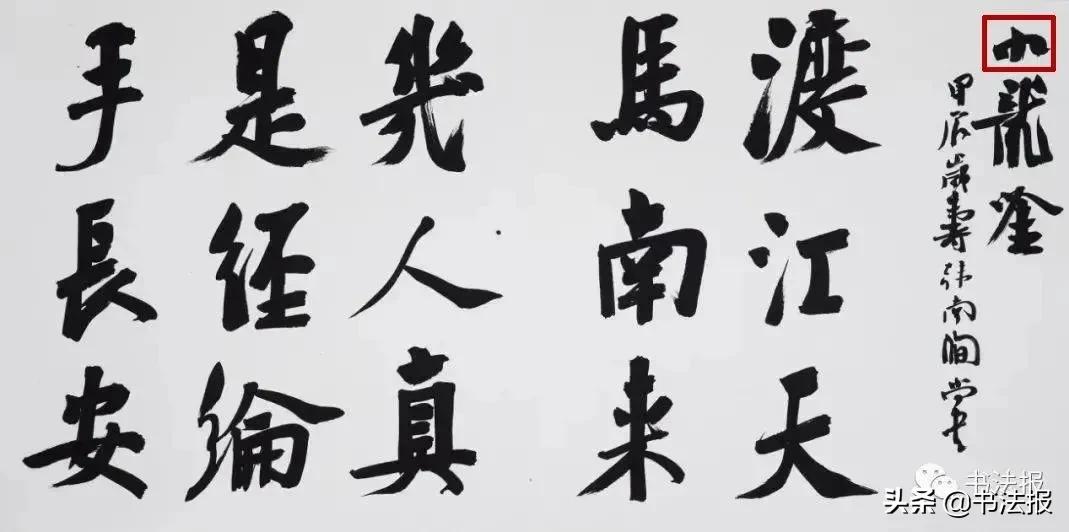 水龍唫
甲辰歲壽韓南澗尚書
渡江天
馬南来
幾人真
是經綸
手長安
书法报
头条 @书法报